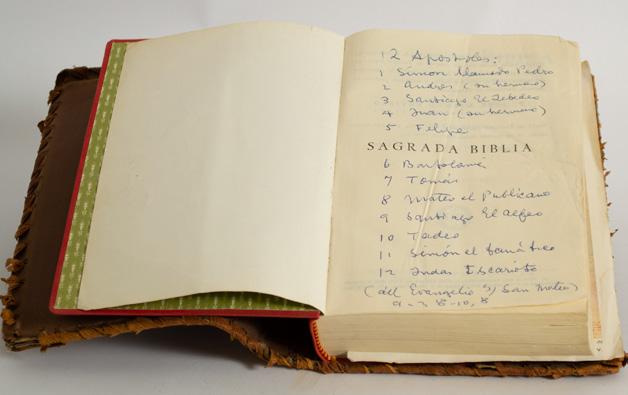 12 Apostoles:
1 Simon llamado Pedro
2 Andres (su hermano)
3 Santiago El Zebedeo
4 Juan (su hermano)
5 Felipe
SAGRADA BIBLIA
6 Bartolomé
7 Tomás
8 Mateo el Publicano
9 Santiago El alfeo
10 Tadeo
11 Simón el fanático
12 Judas Iscariote
(del Evangelio S/ San Mateo)